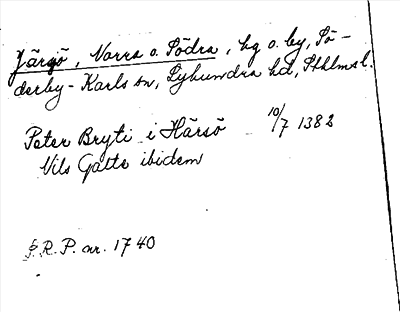 Järsö, Norra o. Södra, hg o. by, Sö-
derby-Karls sn, Lyhundra hd, Sthlms l.
Peter Bryti i Härsö 10/7 1382
Nils Galte ibidem
S.R.P. nr. 1740